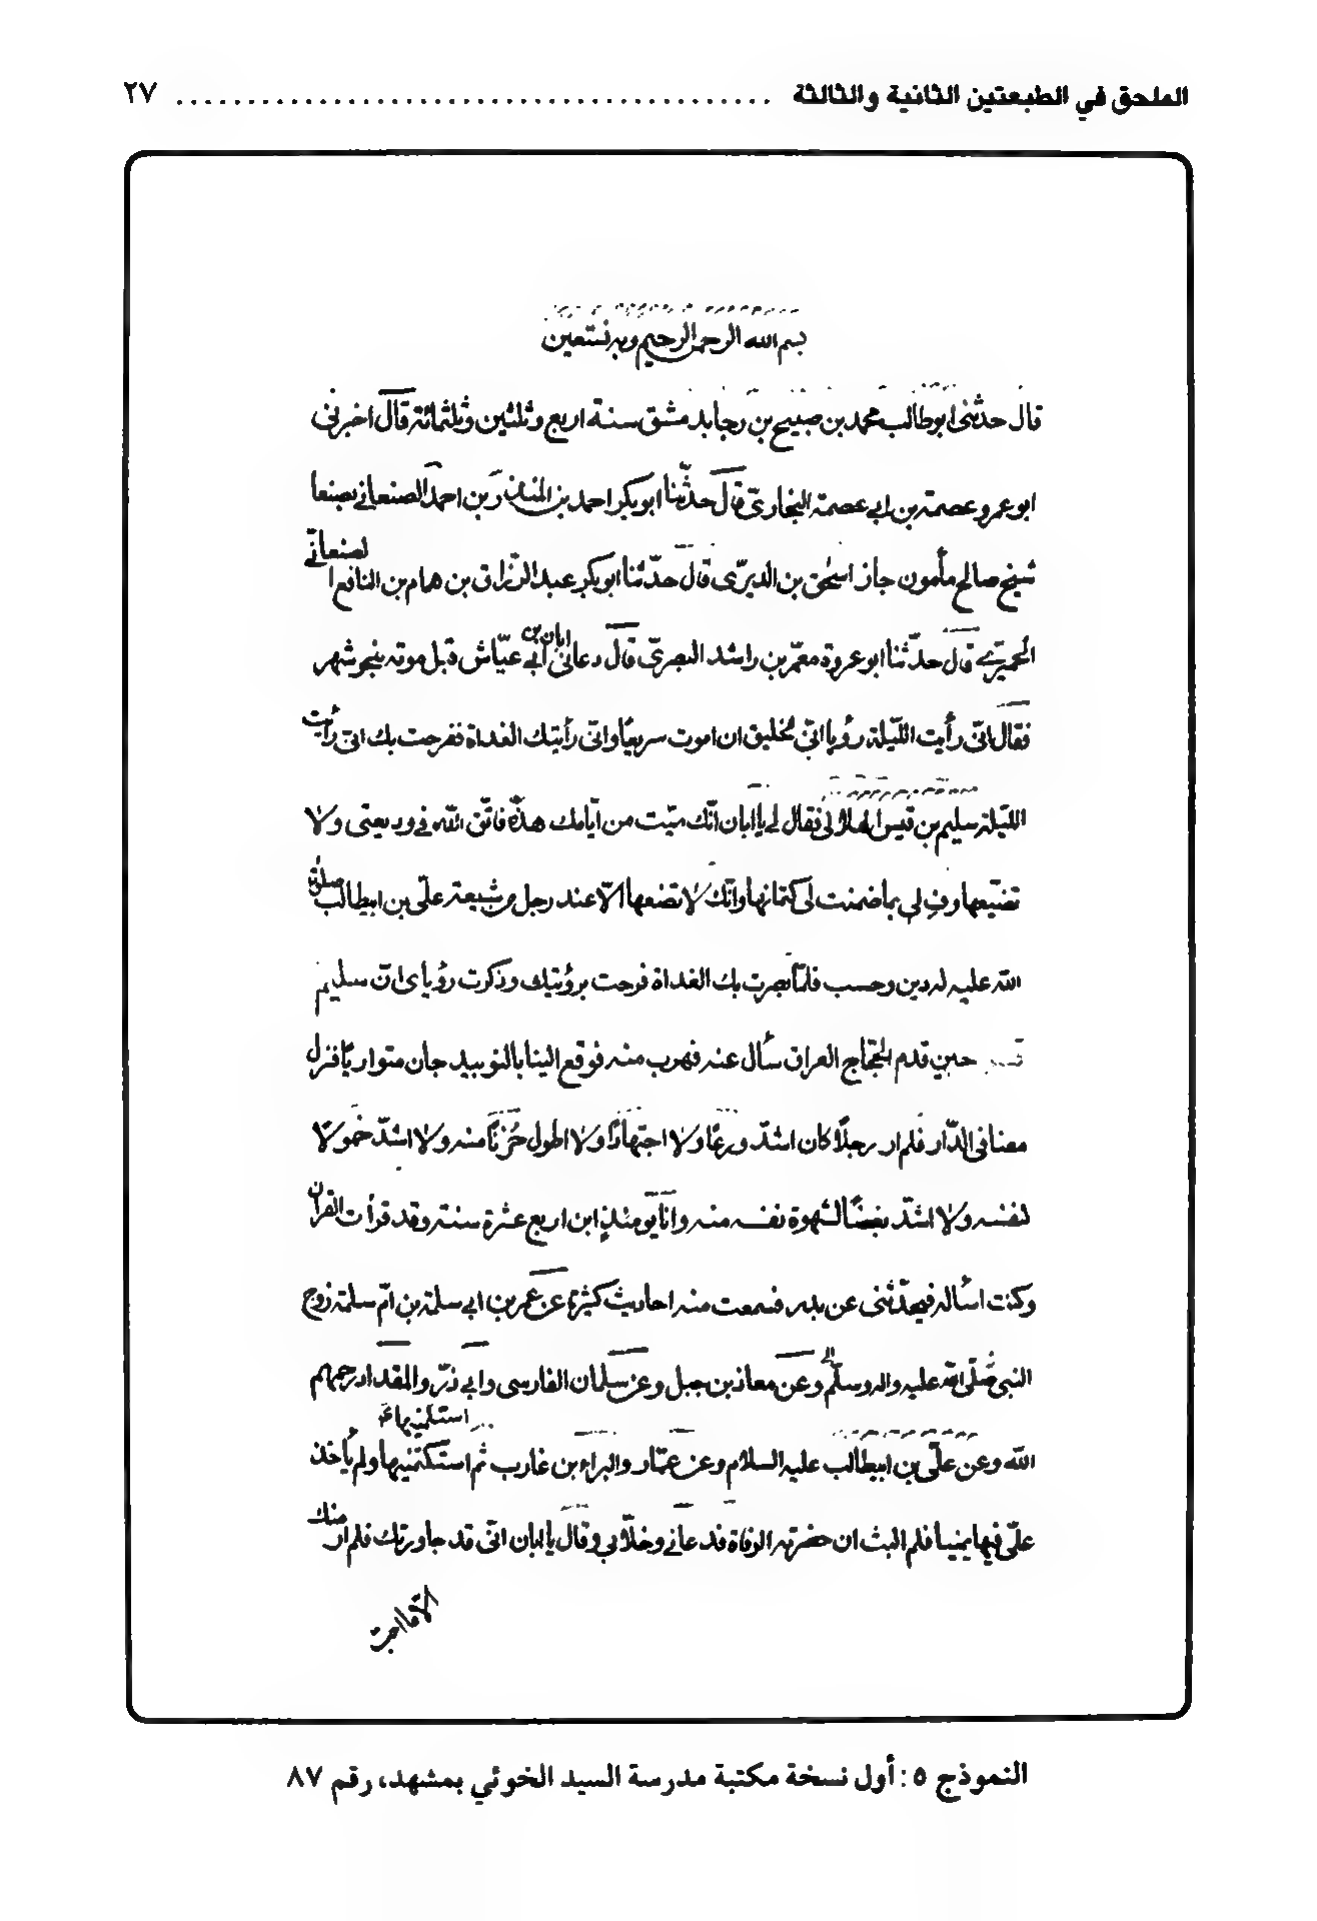 الملحق في الطبعتين الثانية والثالثة ........................................ ٢٧
بسم الله الرحمن الرحيم وبه نستعين
قال حدثنى ابوطالب محمد بن صبيح بن رجا بدمشق سنة اربع وثلثين وثلثمائة قال اخبرنى
ابوعمرو عصمة بن ابي عصمة البخارىّ قال حدّثنا ابوبكر احمد بن المنذر بن احمد الصنعاني بصنعا
شيخ صالح مأمون جاز اسحٰق بن الديرّى قال حدّثنا ابوبكر عبد الرّزاق بن همام بن النافع الصنعانّي
الحميرّي قال حدّثنا ابوعروة معمّر بن راشد البصرىّ قال دعانى ابان بن أبي عيّاش قبل موته بنحو شهر
فقال انّى رأيت اللّيلة رؤيا انّي لخليق ان اموت سريعًا وانّى رأيتك الغداة ففرحت بك انى رأيت
اللّيلة سليم بن قيس الهلالى فقال لي يا ابان انّك ميّت من أيّامك هذه فاتّق اللّه في وديعتى ولا
تضيّعها وفِ لي بما ضمنت لى كتمانها وانّك لا تضعها الّا عند رجل من شيعة علىّ بن ابيطالب صلوات
اللّه عليه له دين وحسب فلمّا بصرت بك الغداة فرحت برؤيتك وذكرت رؤياى انّ سليم
حين قدم الحجّاج العراق سأل عنه فهرب منه فوقع الينا بالنوبندجان متواريًا فنزل
معنا فى الدّار فلم ار رجلًا كان اشدّ ورعًا ولا اجتهادًا ولا اطول حُزنًا منه ولا اشدّ خمولًا
لنفسه ولا اشدّ بغضًا لشهوة نفسه منه وانا يومئذٍ ابن اربع عشرة سنة وقد قرأت القرآن
وكنت اسأله فيحدّثنى عن بدر فسمعت منه احاديث كثيرة عن عمر بن ابي سلمة بن امّ سلمة زوج
النبى صلّى اللّه عليه واله وسلّم وعن معاذ بن جبل وعن سلمان الفارسى وابي ذرّ والمقداد رحمهم
اللّه وعن علىّ بن ابيطالب عليه السلام وعن عمّار والبراء بن غارب ثم استكتمنيها ولم يأخذ
علىّ فيها يمينا فلم البث ان حضرته الوفاة فدعاني وخلّا بي وقال يا ابان انّى قد جاورتك فلم ار منك
الّا ما احبّ
النموذج ٥ : أول نسخة مكتبة مدرسة السيد الخوئي بمشهد، رقم ٨٧